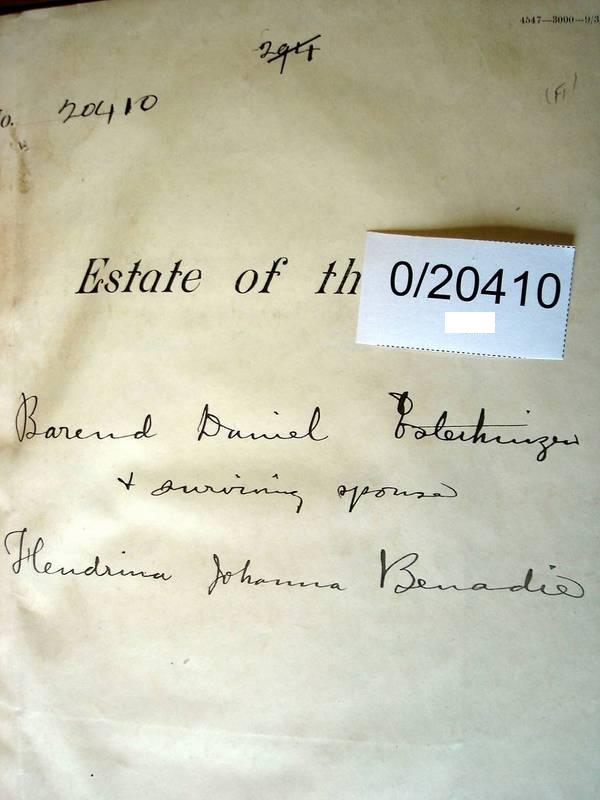 4547—3000—9/3
294
o. 20410
(F1)
Estate of th
0/20410
Barend Daniel Esterhuizen
& surviving spouse
Hendrina Johanna Benadie